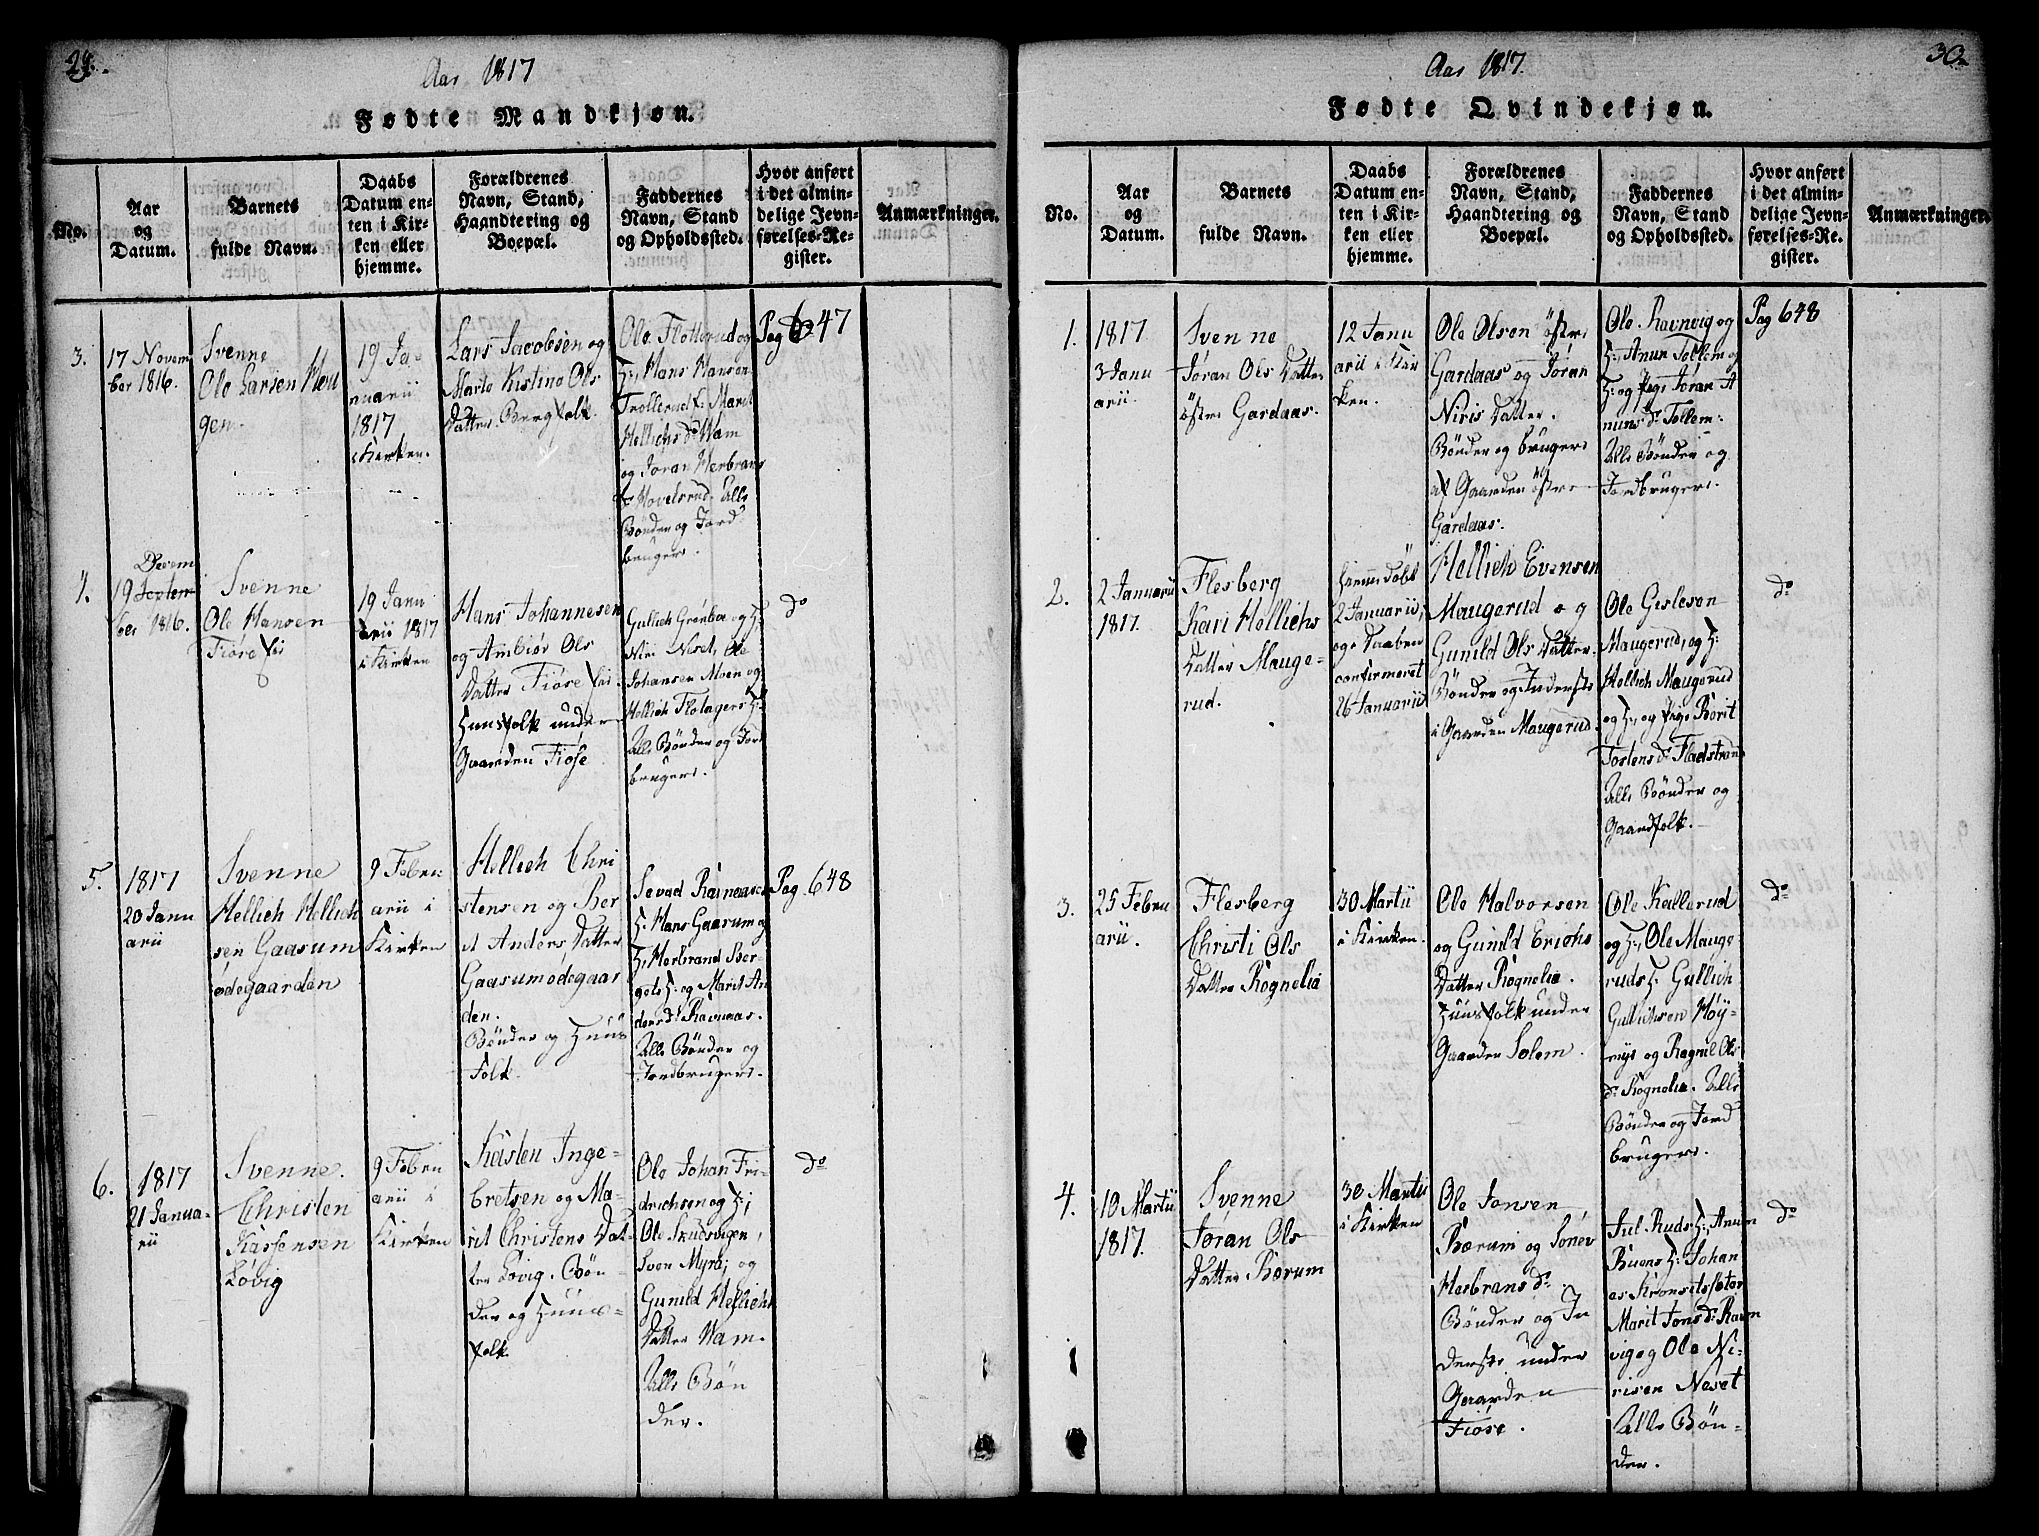 29.
Aar 1817
Fødte Mandkjøn.
No.
Aar
og
Datum.
Barnets
fulde Navn.
Daabs
Datum en-
ten i Kir-
ken eller
hjemme.
Forældrenes
Navn, Stand,
Haandtering og
Boepæl.
Faddernes
Navn, Stand
og Opholdssted.
Hvor anført
i det almin-
delige Jevn-
førelses-Re-
gister.
Anmærkninger.
3.
17 Novem
ber 1816.
Svenne
Ole Larsen
gen.
19 Ja
nuarii
1817
i Kirken.
Lars Jacobsen og
Marte Kistine Ols
Datter Bergfolk.
Ole Flotterud og
H:, Hans Hansen
Trollerud f: Marit
Hellichs D: Wam
og Joran Herbrans
D: Hovelsrud. Alle
Bønder og Jord
brugere.
Pag 647
4.
Decem
19 Septem
ber 1816.
Svenne
Ole Hansen
Fiøse
19 Janu
arii 1817
i Kirken
Hans Johannesen
og Ambiør Ols
Datter Fiøse
Huusfolk under
Gaarden Fiøse
Gullich Grønboe og H:
Niri Neset, Ole
Johansen Moen og
Hellich Flotagers H:
Alle Bønder og Jord
brugere.
do
5.
1817
20 Janu
arii
Svenne
Hellich Hellich
sen Gaasum
ødegaarden
9 Febru
arii i
Kirken
Hellich Chri
stensen og Ber
it Anders Datter
Gaasumødegaar
den.
Bønder og Huus
Folk.
Sevad Ravnaas og
H: Hans Gaasum og
H: Herbrand Ber-
gets H: og Marit An
ders D: Ravnaas.
Alle Bønder og
Jordbrugere.
Pag. 648
6.
1817
21 Janua-
rii
Svenne.
Christen
Kastensen
Løvig
9 Febru
arii i
Kirken
Kasten Inge-
bretsen og Ma-
rit Christens Dat-
ter Løvig. Bøn-
der og Huus-
folk.
Ole Johan Fri-
drichsen og H;
Ole Skudsvigen,
Sven Myra; og
Gunild Hellichs
Datter Wam.
Alle Bøn
der.
do
30.
Aar 1817.
Fødte Qvindekjøn.
No.
Aar
og
Datum.
Barnets
fulde Navn.
Daabs
Datum en-
ten i Kir-
ken eller
hjemme.
Forældrenes
Navn, Stand,
Haandtering og
Boepæl.
Faddernes
Navn, Stand
og Opholdssted.
Hvor anført
i det almin-
delige Jevn-
førelses-Re-
gister.
Anmærkninger.
1.
1817
3 Janu
arii.
Svenne
Jøran Ols Datter
østre Gardaas.
12 Janu
arii i Kir
ken.
Ole Olsen østre
Gardaas og Jøran
Niris Datter.
Bønder og brugere
af Gaarden østre
Gardaas.
Ole Ravnvig og
H:, Anun Tollem og
H: og Pige Jøran A
nuns D: Tollem:
Alle Bønder og
Jordbrugere.
Pag 648
2.
2 Januarii
1817.
Flesberg
Kari Hellichs
Datter Mauge-
rud.
Hiemmedøbt
2 Januarii,
og Daaben
confirmeret
26 Januarii
Hellich Evensen
Maugerud og
Gunild Ols Datter.
Bønder og Inderste
i Gaarden Maugerud.
Ole Gislesen
Maugerud, og H:
Hellich Maugerud
og H:, og Pige Borit
Tostens D: Fladstrand
Alle Bønder og
Gaardfolk.
do
3.
25 Febru
arii.
Flesberg
Christi Ols
Datter Rognelia
30 Martii
i Kirken.
Ole Halvorsen
og Gunild Erichs
Datter Rognelie.
Huusfolk under
Gaarden Solem.
Ole Kallerud
og H:, Ole Mauge
ruds H: Gullich
Gullichsen Høy-
myr og Ragnil Ols
D: Rognelie. Alle
Bønder og Jord
brugere.
do
4.
10 Martii
1817.
Svenne
Jøran Ols
Datter Børum
30 Martii
i Kirken
Ole Jonsen
Børum og
Herbrans D:
Bønder og In
derste under
Gaarden
Fiøse.
Jul. Ruds H:, Anun
Buens H: Johan
es Kronsetsæter
Marit Jons D: Ravn
vig og Ole Ni-
risen Neset
Alle Bøn-
der.
do